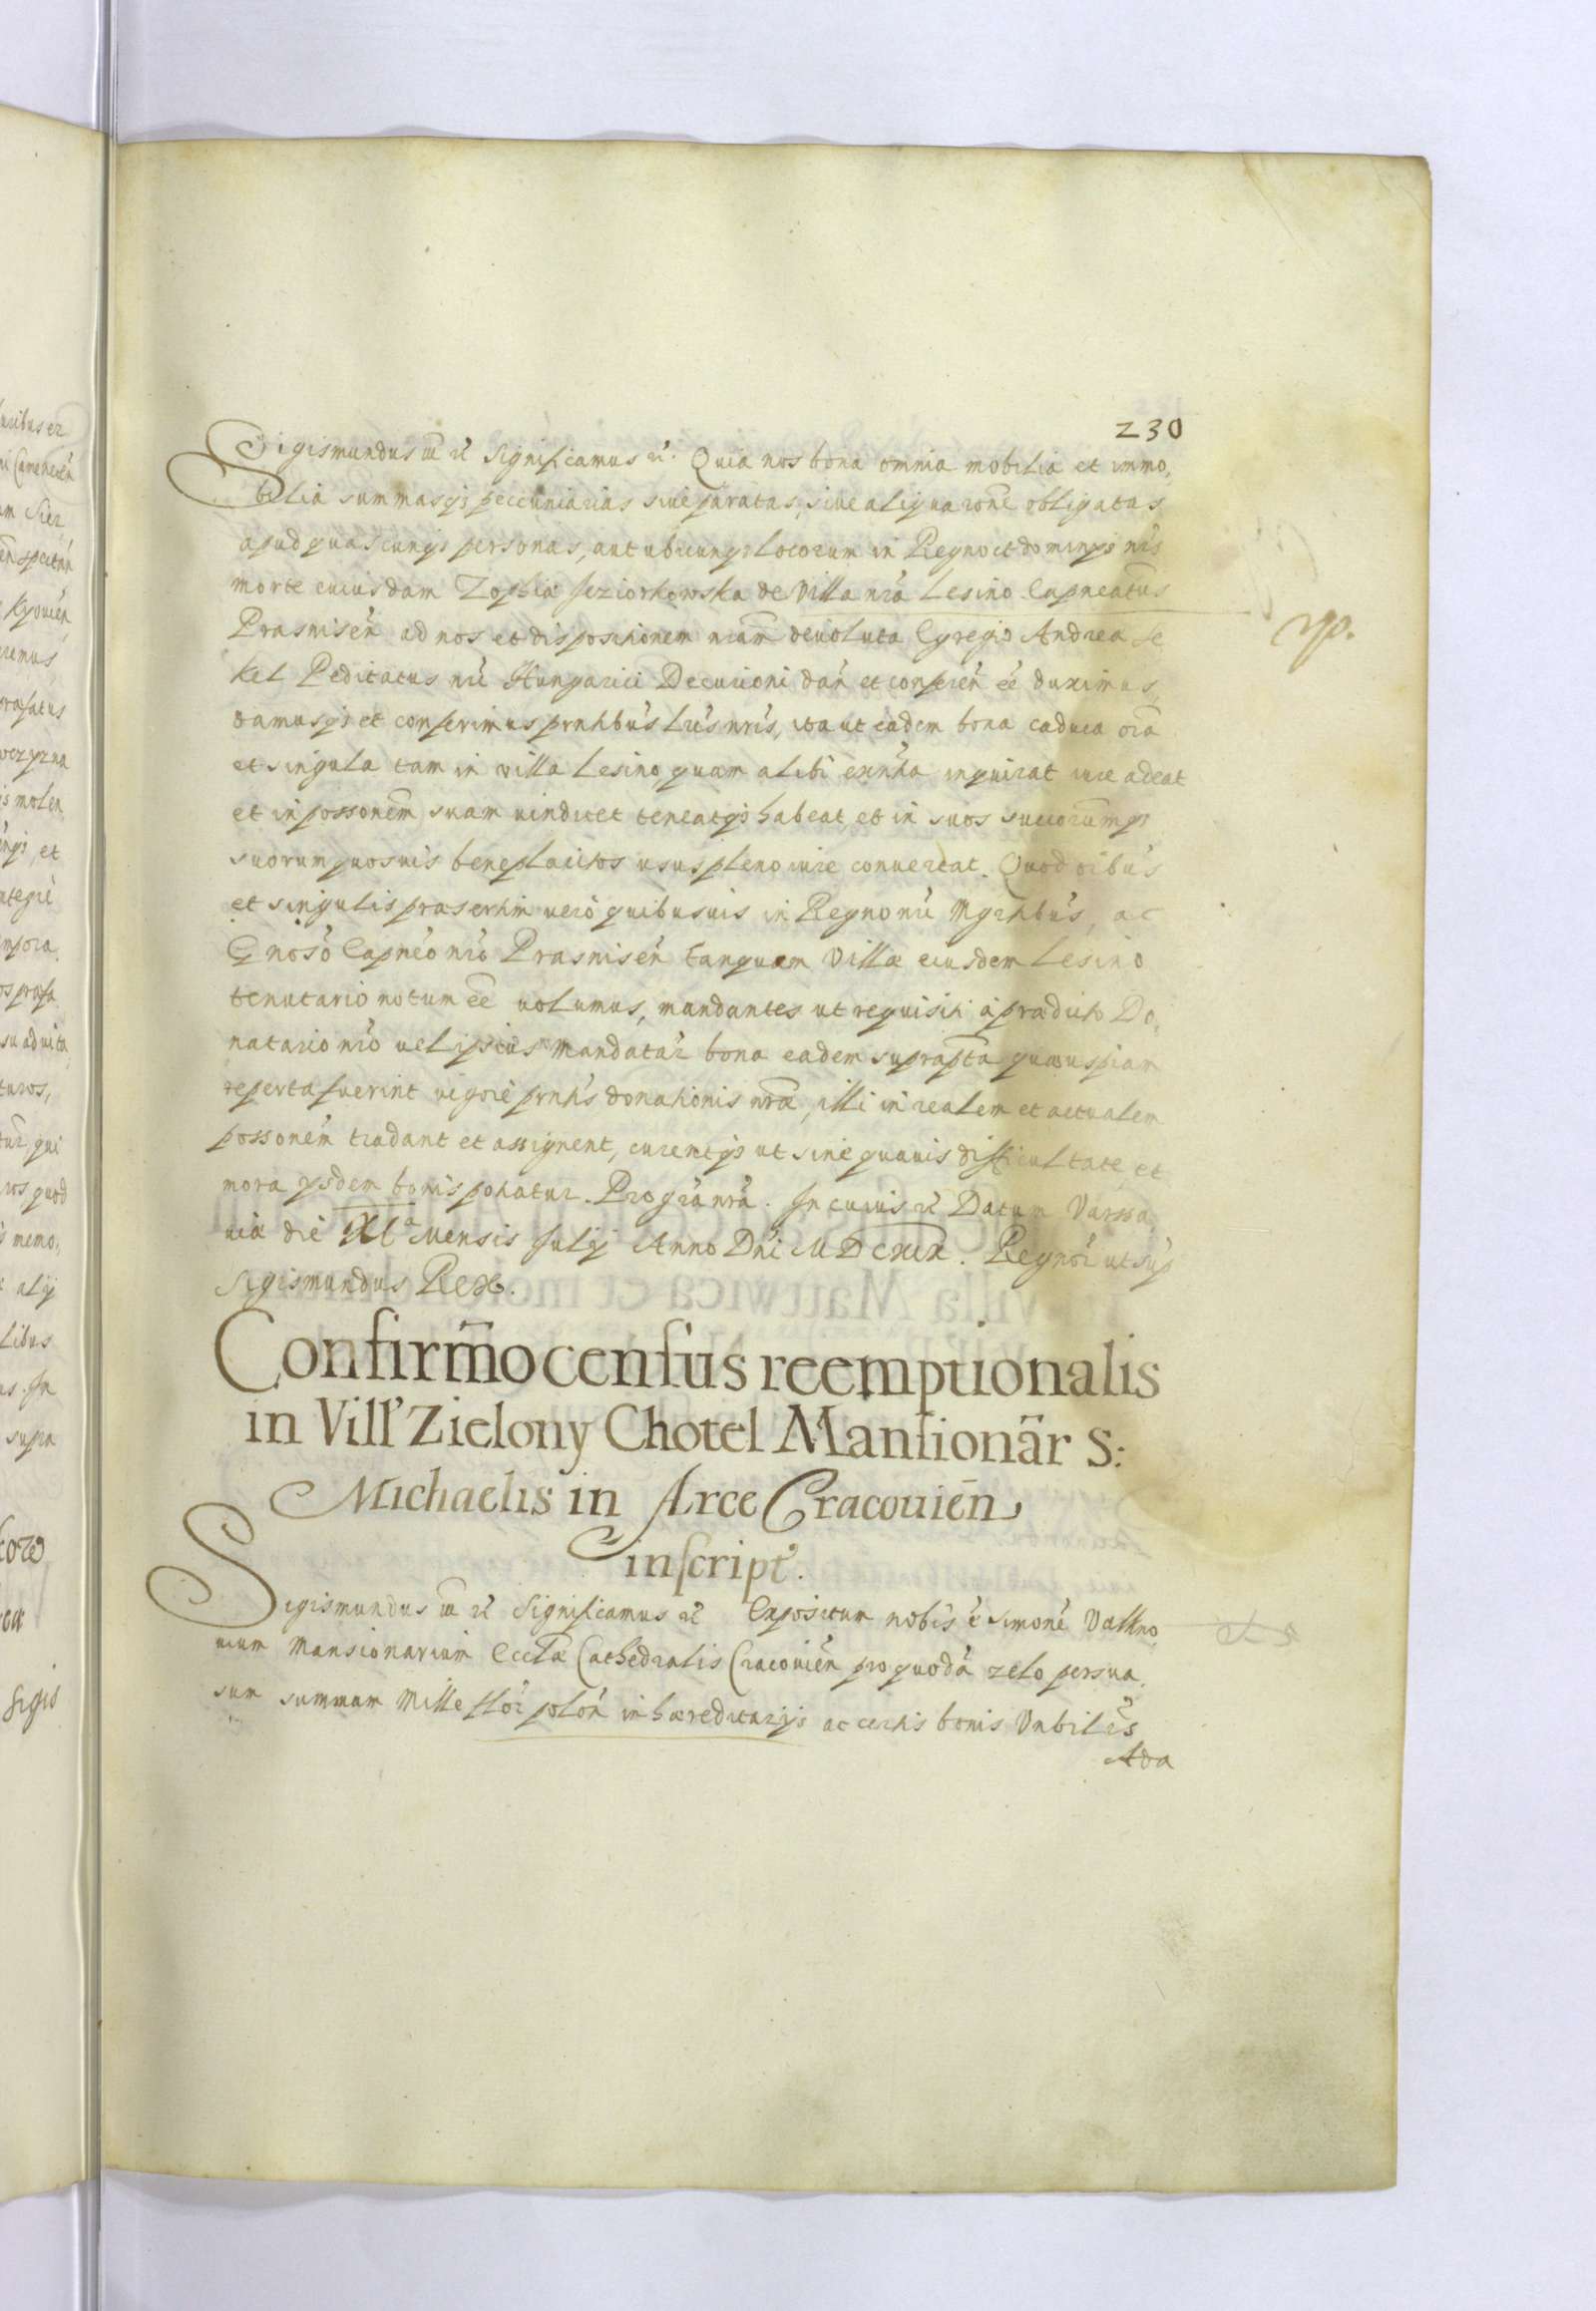 230
Sigismundus iii rc Significamus rc. Quia nos bona omnia mobilia et immo,
bilia summasqз peccuniarias siue paratas, siue aliqua rone obligatas
apud quascunqз personas, aut ubicunqз locorum in Regno et dominys nris
morte cuiusdam Zophiæ Jeziorkowska de Villa nra Lesino Capneatus
Prasnisen ad nos et dispositionem nram deuoluta Egregio Andreæ Se
kel Peditatus nri Hungarici Decurioni dan et conferen ee duximus
damusqз et conferimus prntibus Lris nris, ita ut eadem bona caduca oia
et singula tam in villa Lesino, quam alibi exntia inquirat iure adeat
et in possonem suam uindicet teneatqз habeat et in suos succorumqз
suorum quosuis beneplacitos usus pleno iure conuertat. Quod oibus
et singulis præsertim uero quibusuis in Regno nri Mgrtibus, ac
Gnoso Capneo nro Prasnisen tanquam Villæ eiusdem Lesino
tenutario notum ee uolumus, mandantes ut requisiti a prædicto Do,
natario nro uel ipsius mandatar bona eadem suprapta quæuspiam
reperta fuerint uigore prntis donationis nræ, illi in realem et actualem
possonem tradant et assignent, curentqз ut sine quauis difficultate et
mora ysdem bonis potiatur. Pro gra nra. In cuius rc Datum Varssa,
uiæ die XIa Mensis Julij Anno Dni MDCXIX. Regnor ut sup
Sigismundus Rex.
Confirmo census reemptionalis
in Vill' Zielony Chotel Mansionar S:
Michaelis in Arce Cracouien
inscript.
Sigismundus iii rc Significamus rc Expositum nobis e Simone Vallno,
uium Mansionarium Ecclæ Cathedralis Cracouien pro quoda zelo persua,
sum summam Mille flor polon in hæreditarijs ac certis bonis Vnbilis
Ada